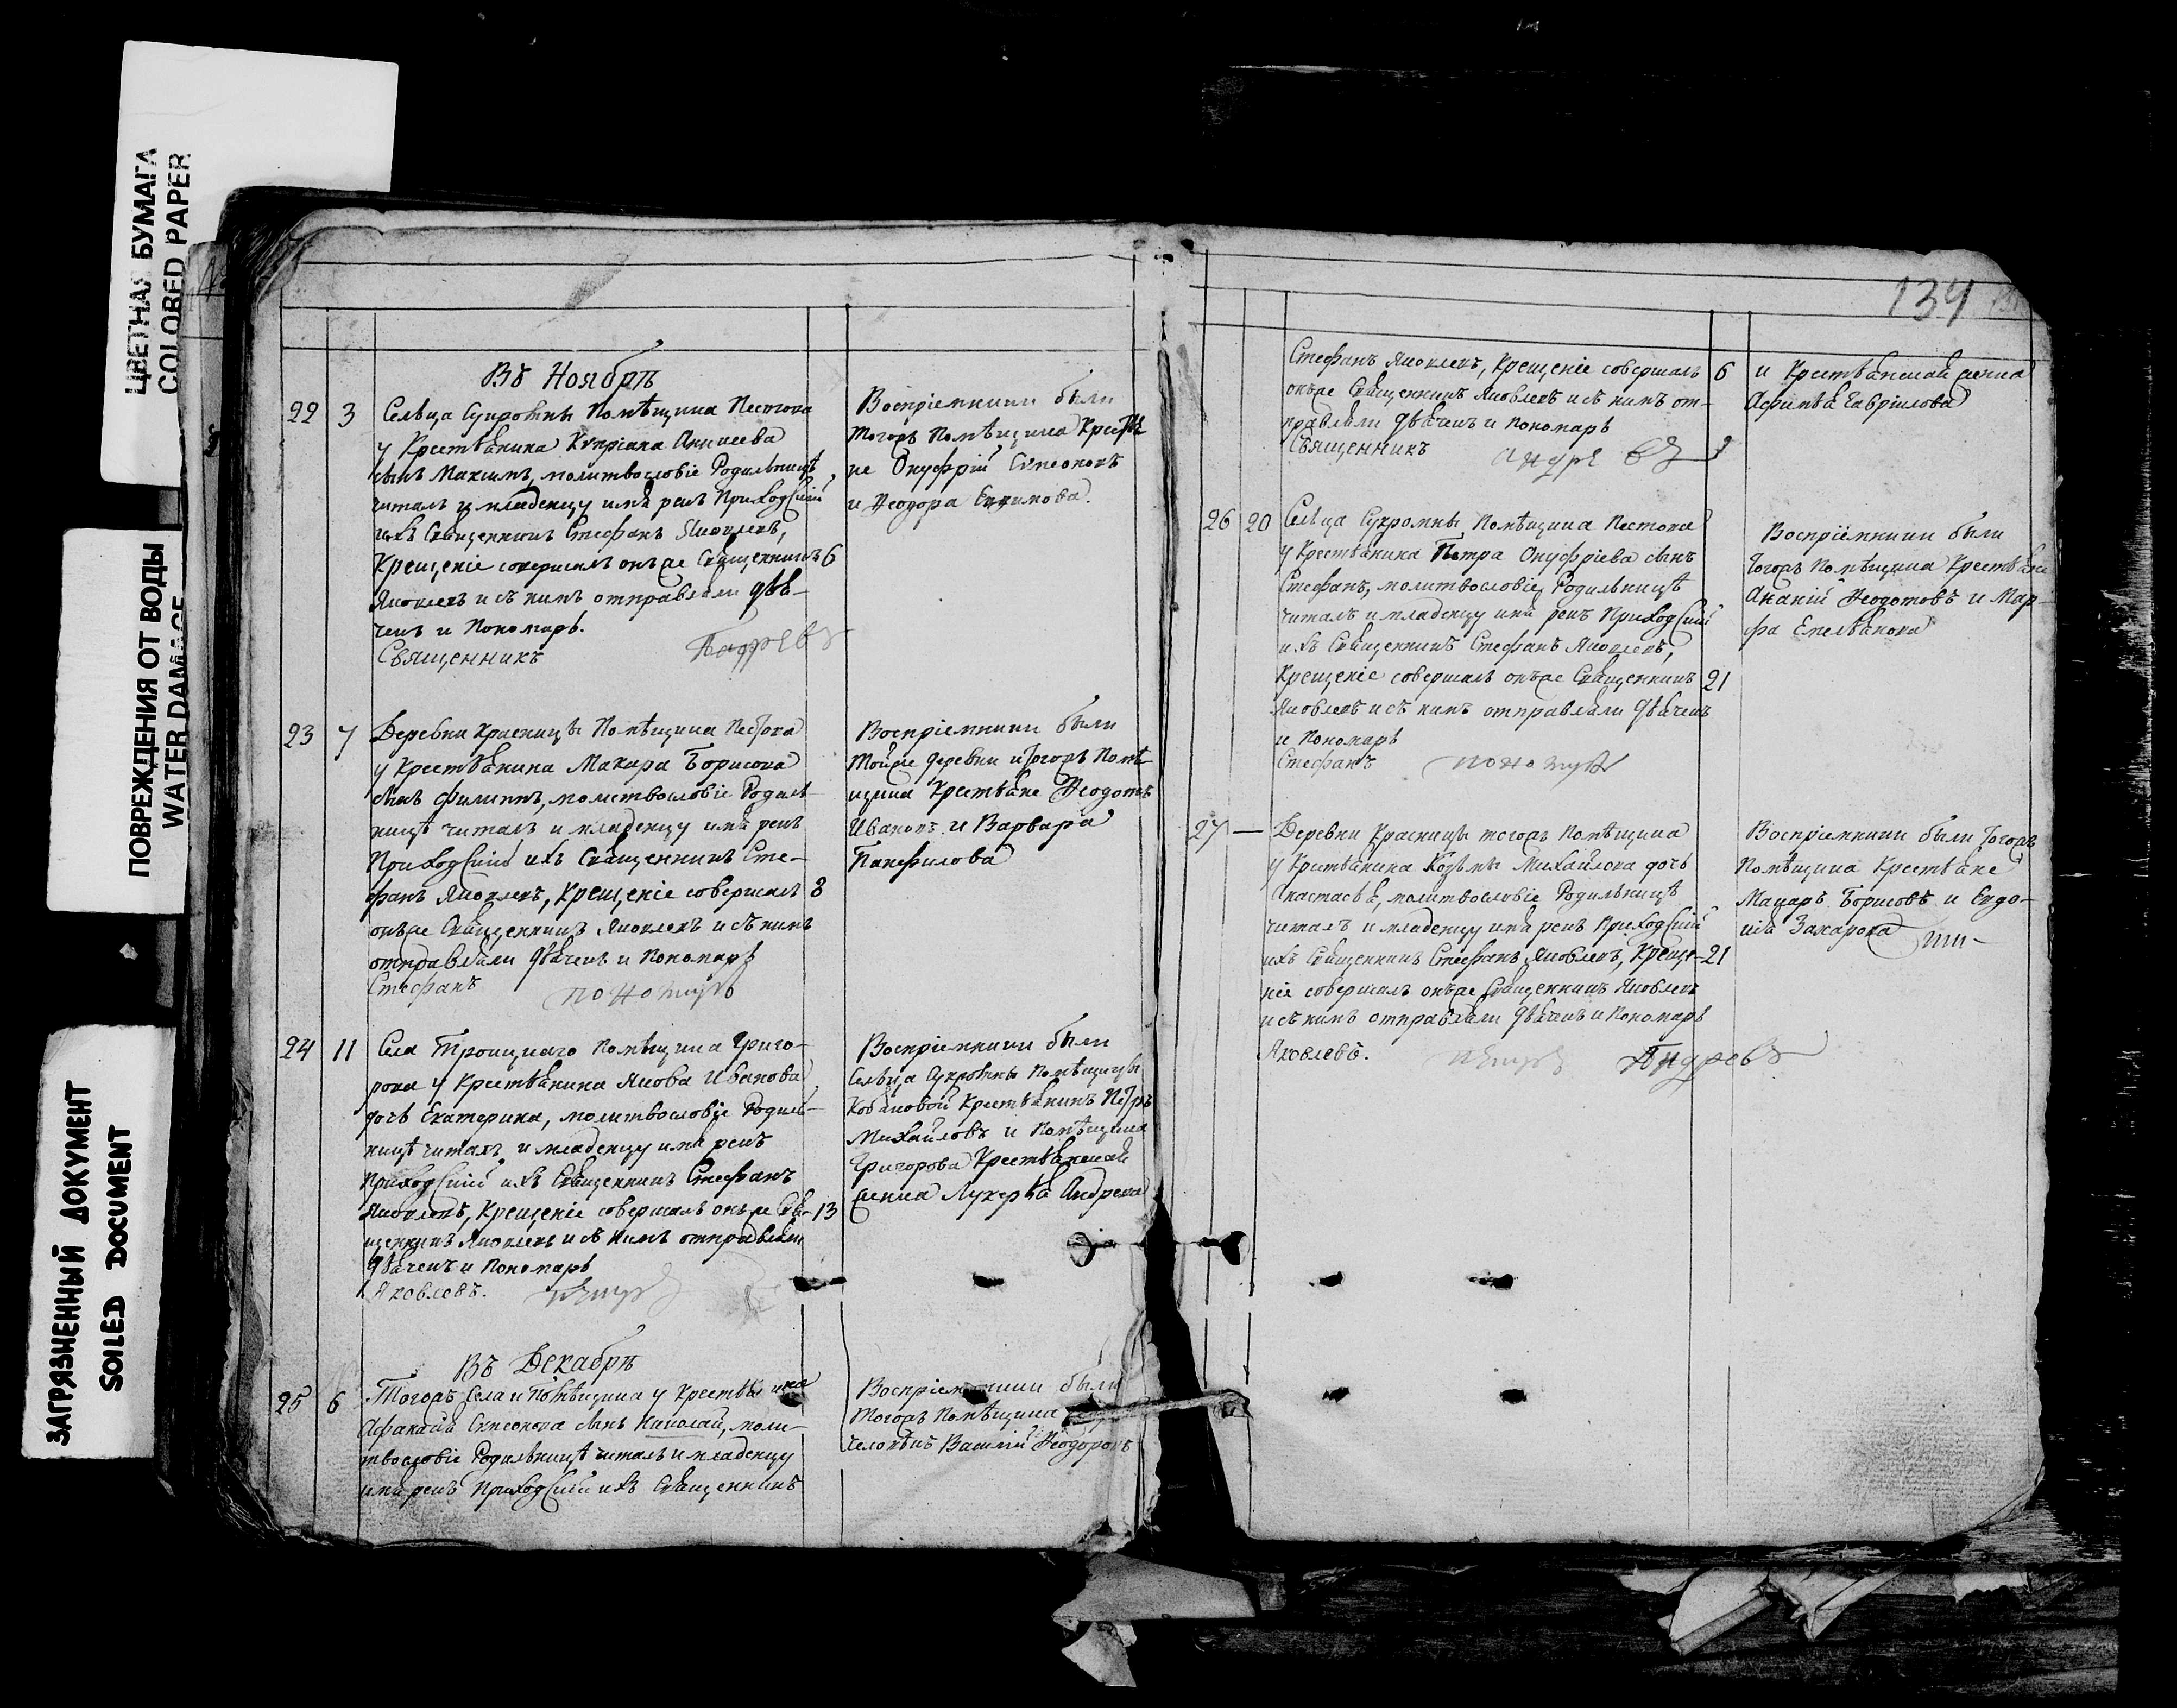 ЦВЕТНАЯ БУМАГА
COLORED PAPER
ПОВРЕЖДЕНИЯ ОТ ВОДЫ
WATER DAMAGE
ЗАГРЯЗНЕННЫЙ ДОКУМЕНТ
SOILED DOCUMENT
Въ Ноябрѣ
22 3 Сельца Сукромны Помѣщика Пестова
у Крестьянина Купріана
сынъ Максимъ, молитвословіе Родильницѣ
читалъ и младенцу имя рекъ Приходскій
ихъ Священникъ Стефанъ Яковлевъ,
Крещеніе совершалъ онъже Священникъ 6
Яковлевъ и съ нимъ отправляли дья-
чекъ и Пономарь.
Священникъ
Воспріемники были
тогожъ Помѣщика Крестья
не Онуфрій Симеоновъ
и Ѳеодора
23 7 Деревни Красницы Помѣщика Пестова
у Крестьянина Макара Борисова
сынъ Филиппъ, молитвословіе Родиль-
ницѣ читалъ и младенцу имя рекъ
Приходскій ихъ Священникъ Сте-
фанъ Яковлевъ, Крещеніе совершалъ 8
онъже Священникъ Яковлевъ и съ нимъ
отправляли дьячекъ и Пономарь
Стефанъ
Воспріемники были
тойже деревни и тогожъ Помѣ-
щика Крестьяне Ѳеодотъ
Ивановъ и Варвара
Панфилова
24 11 Села Троицкаго Помѣщика Григо-
рова у Крестьянина Якова Иванова
дочь Екатерина, молитвословіе Родиль-
ницѣ читалъ и младенцу имя рекъ
Приходскій ихъ Священникъ Стефанъ
Яковлевъ, Крещеніе совершалъ онъже Свя- 13
щенникъ Яковлевъ и съ нимъ отправляли
дьячекъ и Пономарь
Яковлевъ.
Воспріемники были
Сельца Сукромны Помѣщицы
Крестьянинъ Петръ
Михайловъ и Помѣщика
Григорова Крестьянская
женка Лукерья Андреева
Въ Декабрѣ
25 6 Тогожъ Села и Помѣщика у Крестьянина
Афанасія Симеонова сынъ Николай, моли-
твословіе Родильницѣ читалъ и младенцу
имя рекъ Приходскій ихъ Священникъ
Воспріемники были
тогожъ Помѣщика
человѣкъ Василій Ѳеодоровъ
134
Стефанъ Яковлевъ, Крещеніе совершалъ 6
онъже Священникъ Яковлевъ и съ нимъ от-
правляли дьячекъ и Пономарь
Священникъ
и Крестьянская женка
Гаврилова
26 20 Сельца Сукромны Помѣщика Пестова
у Крестьянина Петра Онуфріева сынъ
Стефанъ, молитвословіе Родильницѣ
читалъ и младенцу имя рекъ Приходскій
ихъ Священникъ Стефанъ Яковлевъ,
Крещеніе совершалъ онъже Священникъ 21
Яковлевъ и съ нимъ отправляли дьячекъ
и Пономарь
Стефанъ
Воспріемники были
тогожъ Помѣщика Крестьяне
Ананій Ѳеодотовъ и Мар-
фа Емельянова
27 — Деревни Красницы тогожъ Помѣщика
у Крестьянина Козьмы Михайлова дочь
Анастасья, молитвословіе Родильницѣ
читалъ и младенцу имя рекъ Приходскій
ихъ Священникъ Стефанъ Яковлевъ, Креще- 21
ніе совершалъ онъже Священникъ Яковлевъ
и съ нимъ отправляли дьячекъ и Пономарь
Яковлевъ. Андреевъ
Воспріемники были тогожъ
Помѣщика Крестьяне
Макаръ Борисовъ и Евдо-
кія Захарова